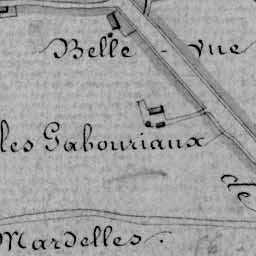 Belle - vue
les Gabouriaux
Mardelles.